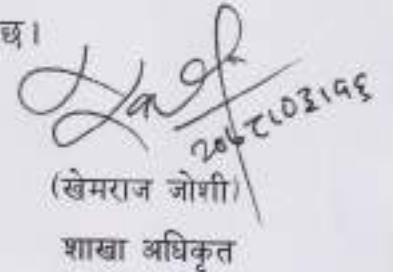 छ।
२०७८।०३।१६
(खेमराज जोशी)
शाखा अधिकृत